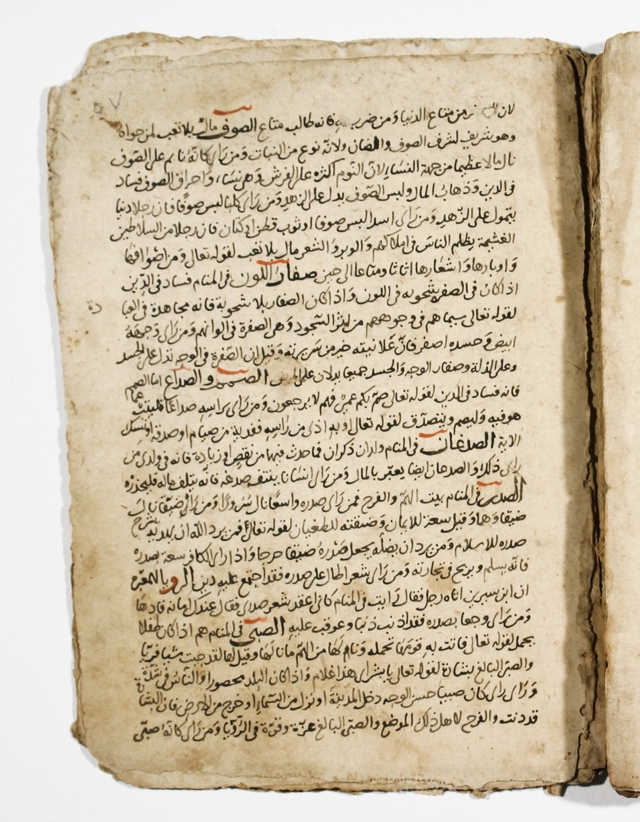 من متاع الدنيا ومن ضرب به فانه طالب متاع الصوف مال بلا تعب لمن حواه
وهو شريف لشرف الصوف والضان ولانه نوع من النبات ومن راى كانه نايم على الصوف
نال مالا عظيما من جهة النساء لان النوم اكثره على الفرش وهن نساء واحراق الصوف فساد
في الدين وذهاب المال ولبس الصوف يدل على الزهد ومن راى كلبا لبس صوفا فان رجلا دنيا
يتمول على الزهد ومن راى اسدا لبس صوفا او ثوب قطن او كتان فان رجلا من السلاطين
الغشيمة يظلم الناس في املاكهم والوبر والشعر مال بلا تعب لقوله تعالى ومن اصوافها
واوبارها واشعارها اثاثا ومتاعا الى حين صفار اللون في المنام فساد في الدين
اذا كان في الصفرة شحوبه في اللون واذا كان الصفار بلا شحوبة فانه مجاهدة في العبا
دة
لقوله تعالى سيماهم في وجوههم من اثر السجود وهي الصفرة في الوانهم ومن راى وجهه
ابيض وجسده اصفر فان علانيته خير من سريرته وقيل ان الصفرة في الوجه تدل على الحسد
وعلى الذلة وصفار الوجه والجسد جميعا يدلان على المرض الصمم والصداع اما الصمم
فانه فساد في الدين لقوله تعالى صم بكم عمي فهم لا يرجعون ومن راى براسه صداعا فليتب مما
هو فيه وليصم ويتصدق لقوله تعالى او به اذى من راسه ففدية من صيام او صدقة او نسك
الاية الصدغان في المنام ولدان ذكران فما حدث فيهما من نقص او زيادة فانه في ولدي من
راى ذلك والصدغان ايضا يعبر بالمال ومن راى انسانا ينتف صدغه فانه يتلف ماله فليحذره
الصدر في المنام بيت الهم والفرح فمن راى صدره واسعا نال سرورا ومن راى ضيقا نال
ضيقا وهما وقيل سعته للايمان وضيقته للطغيان لقوله تعالى فمن يرد الله ان يهديه يشرح
صدره للاسلام ومن يرد ان يضله يجعل صدره ضيقا حرجا واذا راى الكافر سعة صدره
فانه يسلم ويربح في تجارته ومن راى شعرا طال على صدره فقد اجتمع عليه دين الرويا المعبره
ان ابن سيرين اتاه رجل فقال رايت في المنام كاني اعقد شعر صدري فقال عندك امانه فادها
ومن راى وجعا بصدره فقد اذنب ذنبا وعوقب عليه الصبي في المنام هم اذا كان طفلا
يحمل لقوله تعالى فاتت به قومها تحمله ونام لها من الهم ما نالها وقيل لها لقد جيت شيا فريا
والصبي البالغ بشارة لقوله تعالى يا بشراي هذا غلام واذا كان البلد محصورا والناس في شدة
وراى راى كان صبيا حسن الوجه دخل المدينة او نزل من السماء او خرج من الارض فان البشا
قد دنت والفرح لاهل ذلك الموضع والصبي البالغ عزة وقوة في الرويا ومن راى كانه صبي